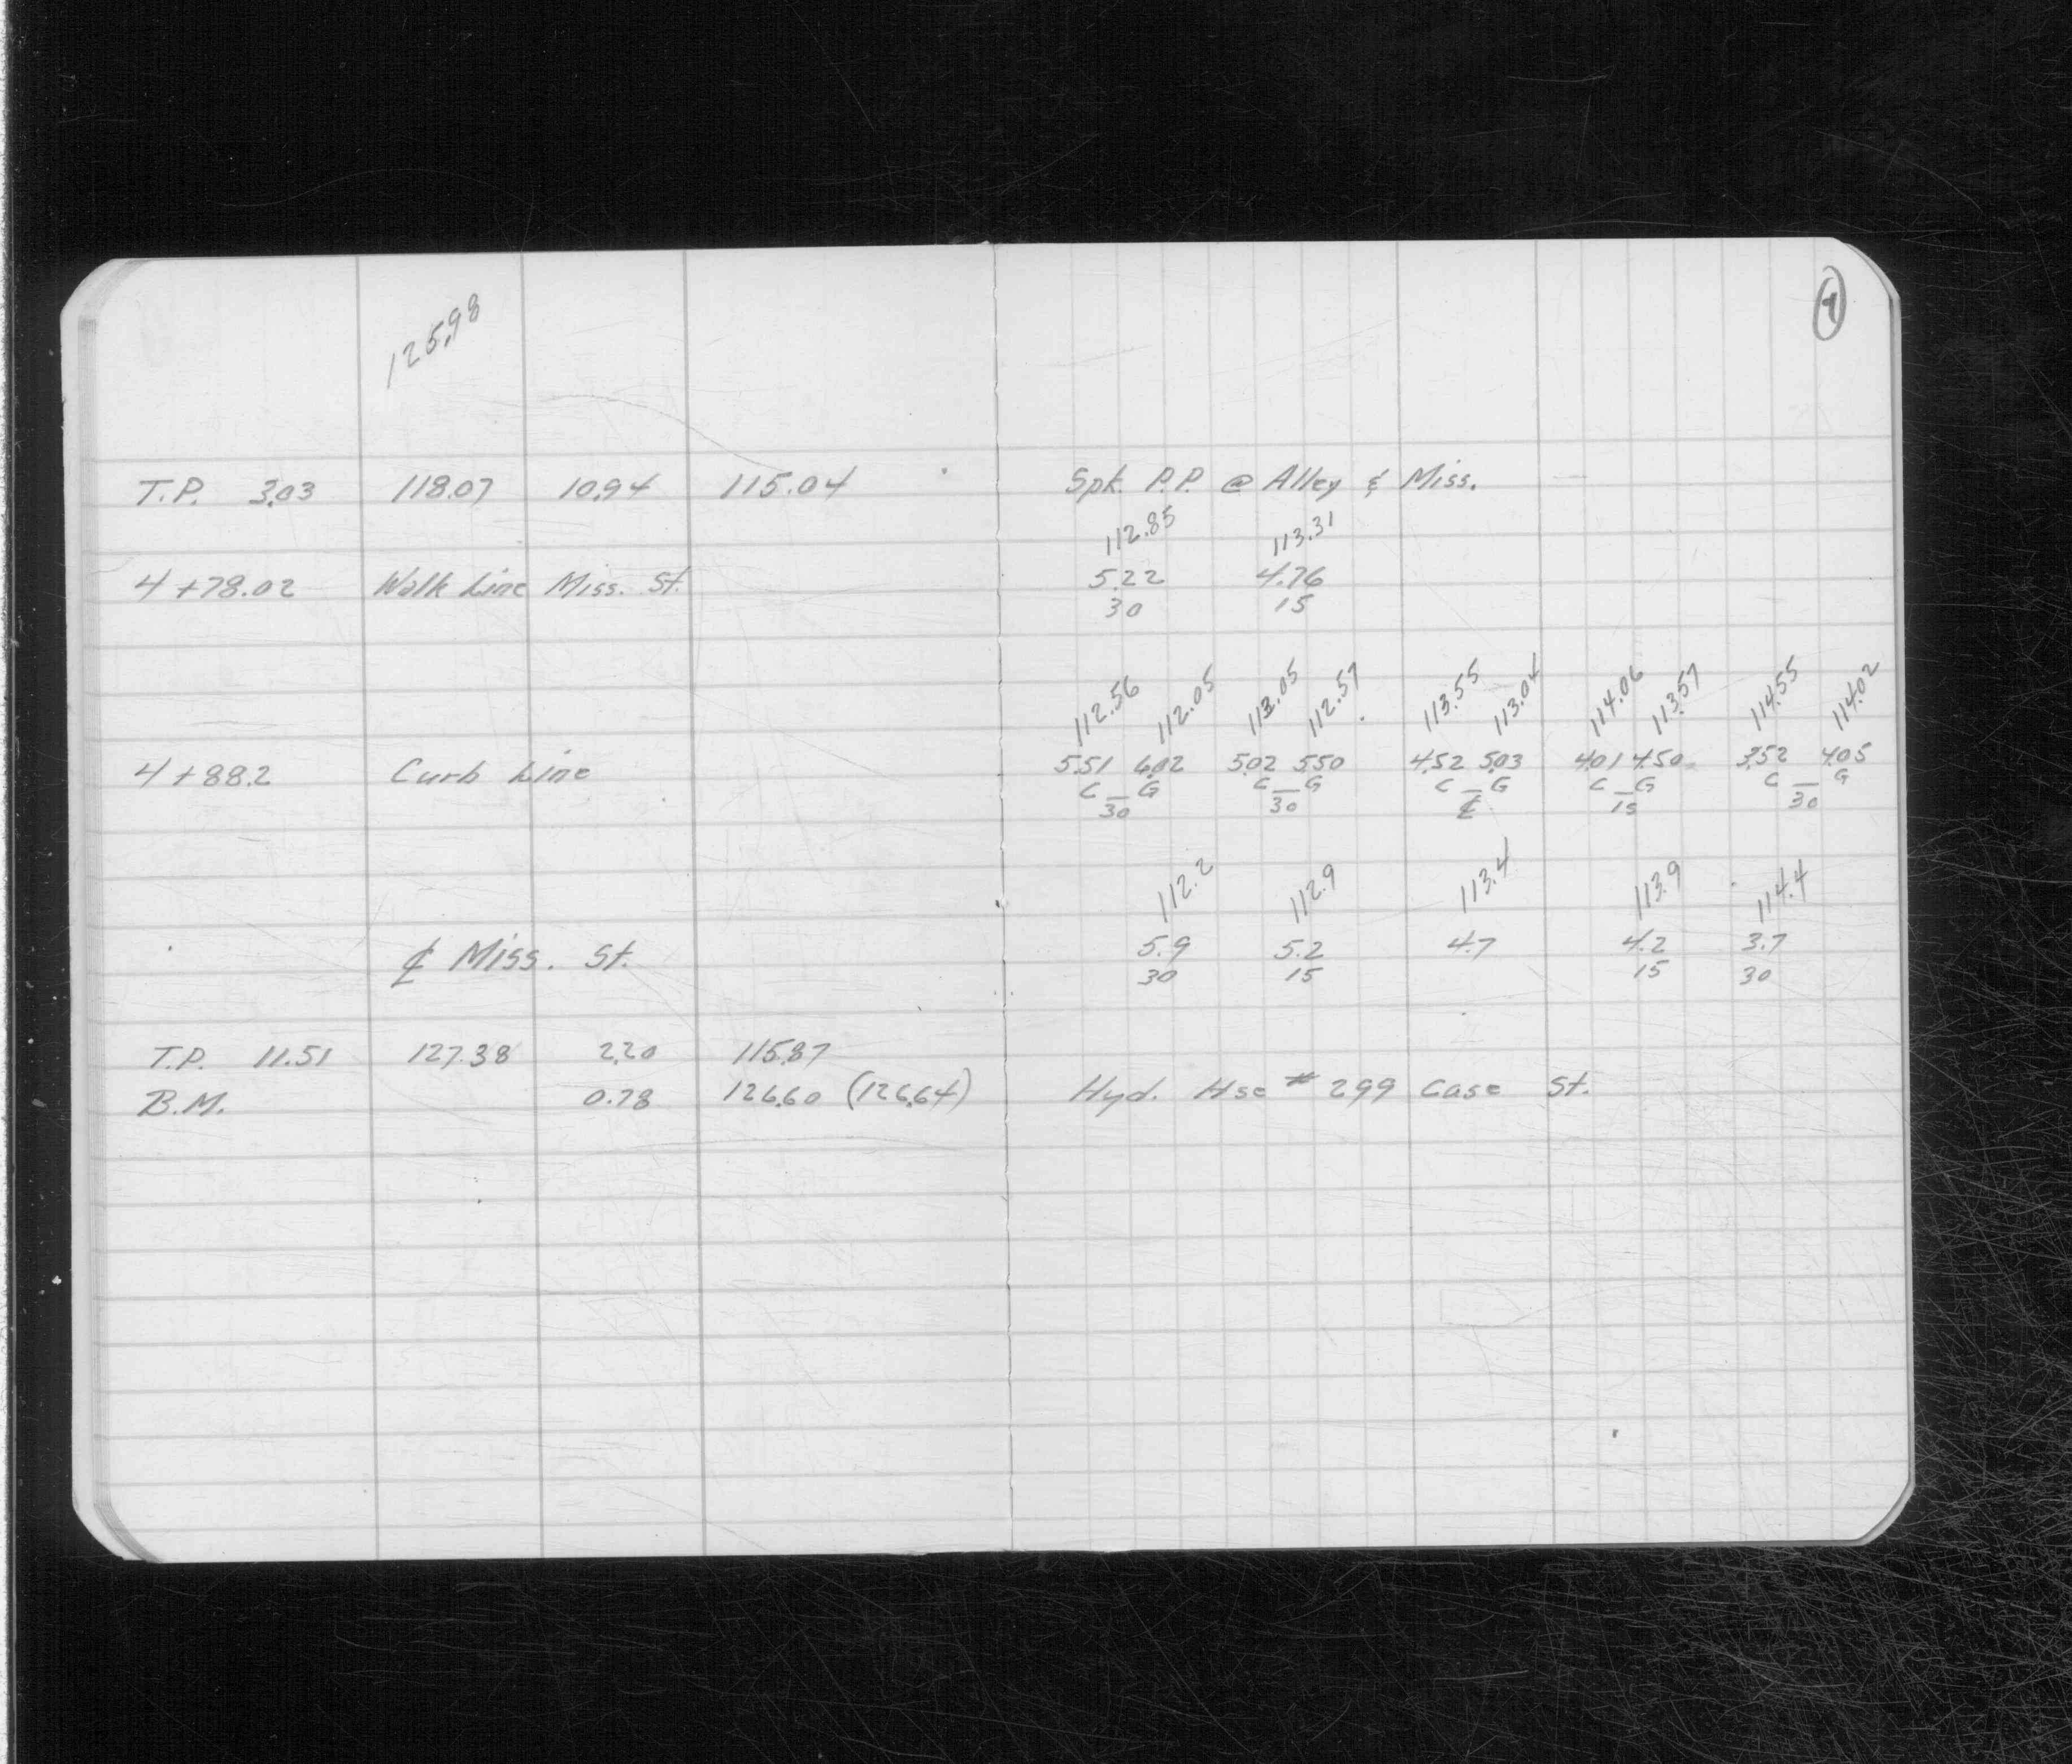 125.98
T.P. 3.03 118.07 10.94 115.04
4+78.02 Walk Line Miss. St.
4+88.2 Curb Line
₵ Miss. St.
T.P. 11.51 127.38 2.20 115.87
B.M. 0.78 126.60 (126.64)
Spk. P.P. @ Alley & Miss.
112.85 113.31
5.22 4.76
30 15
112.56 112.05 113.05 112.57 113.55 113.04 114.06 113.57 114.55 114.02
5.51 6.02 5.02 5.50 4.52 5.03 4.01 4.50 3.52 4.05
C _ G C _ G C _ G C _ G C _ G
30 30 ₵ 15 30
112.2 112.9 113.4 113.9 114.4
5.9 5.2 4.7 4.2 3.7
30 15 15 30
Hyd. Hse # 299 Case St.